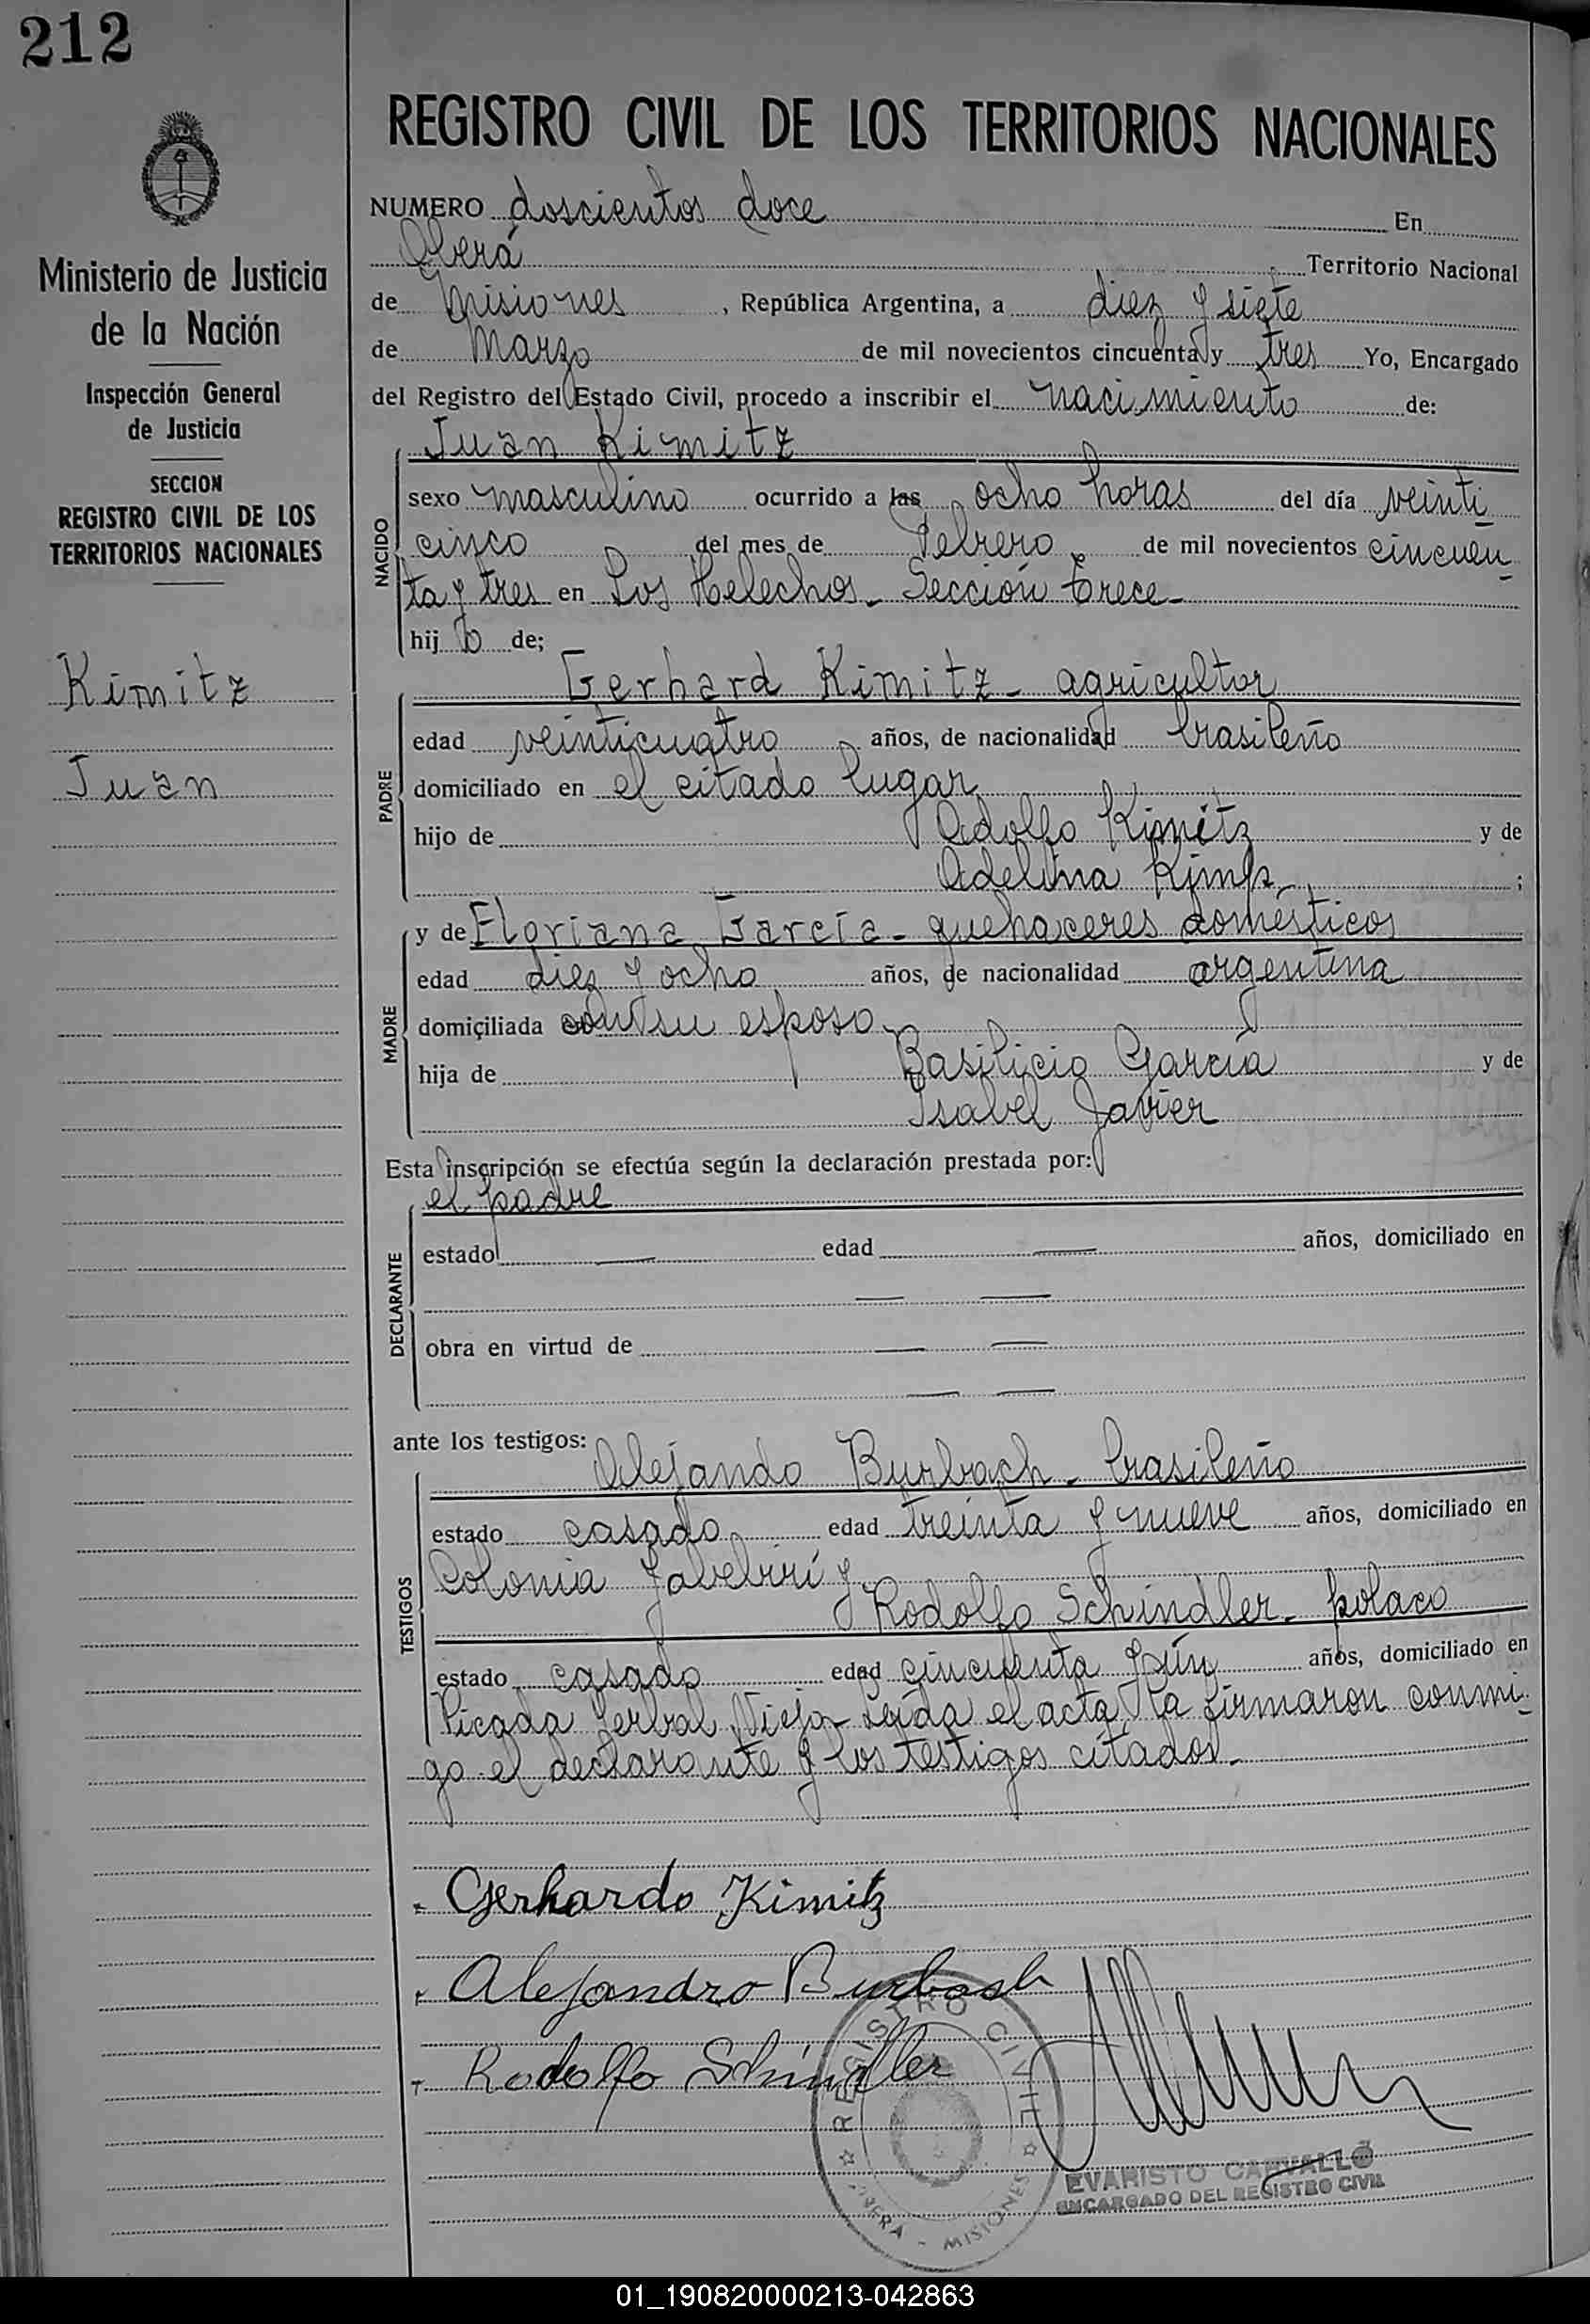 212
Ministerio de Justicia
de la Nación
Inspección General
de Justicia
SECCION
REGISTRO CIVIL DE LOS
TERRITORIOS NACIONALES
Kimitz
Juan
REGISTRO CIVIL DE LOS TERRITORIOS NACIONALES
NUMERO doscientos doce En
Oberá Territorio Nacional
de Misiones, República Argentina, a diez y siete
de Marzo de mil novecientos cincuenta y tres Yo, Encargado
del Registro del Estado Civil, procedo a inscribir el nacimiento de:
NACIDO
Juan Kimitz
sexo masculino ocurrido a las ocho horas del día veinti
cinco del mes de Febrero de mil novecientos cincuen
ta y tres en Los Helechos - Sección trece -
hijo de;
PADRE
Gerhard Kimitz - agricultor
edad veinticuatro años, de nacionalidad brasileño
domiciliado en el citado lugar
hijo de Adolfo Kimitz y de
Adelina ;
MADRE
y de Floriana García - quehaceres domésticos
edad diez y ocho años, de nacionalidad argentina
domiciliada con su esposo
hija de Basilicio García y de
Isabel Javier
Esta inscripción se efectúa según la declaración prestada por:
DECLARANTE
el padre
estado — edad — años, domiciliado en
— —
obra en virtud de — —
— —
ante los testigos:
TESTIGOS
Alejando Burbach - brasileño
estado casado edad treinta y nueve años, domiciliado en
Colonia Yabebirí y
Rodolfo Schindler - polaco
estado casado edad cincuenta y un años, domiciliado en
Picada Yerbal Viejo - Leída el acta, la firmaron conmi
go el declarante y los testigos citados -
Gerhardo Kimitz
Alejandro Burbach
Rodolfo Schindler
REGISTRO CIVIL
OBERA - MISIONES
EVARISTO CARVALLO
ENCARGADO DEL REGISTRO CIVIL
01_190820000213-042863